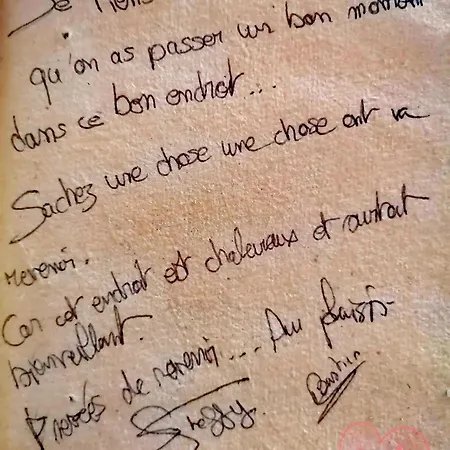 qu'on as passer un bon moment
dans ce bon endrot...
Sachez une chose une chose ont va
revenir.
Car cet endrot est chaleureux et surtout
bienveillant.
de revenir.... Au plaisir
Greggy. Bastien